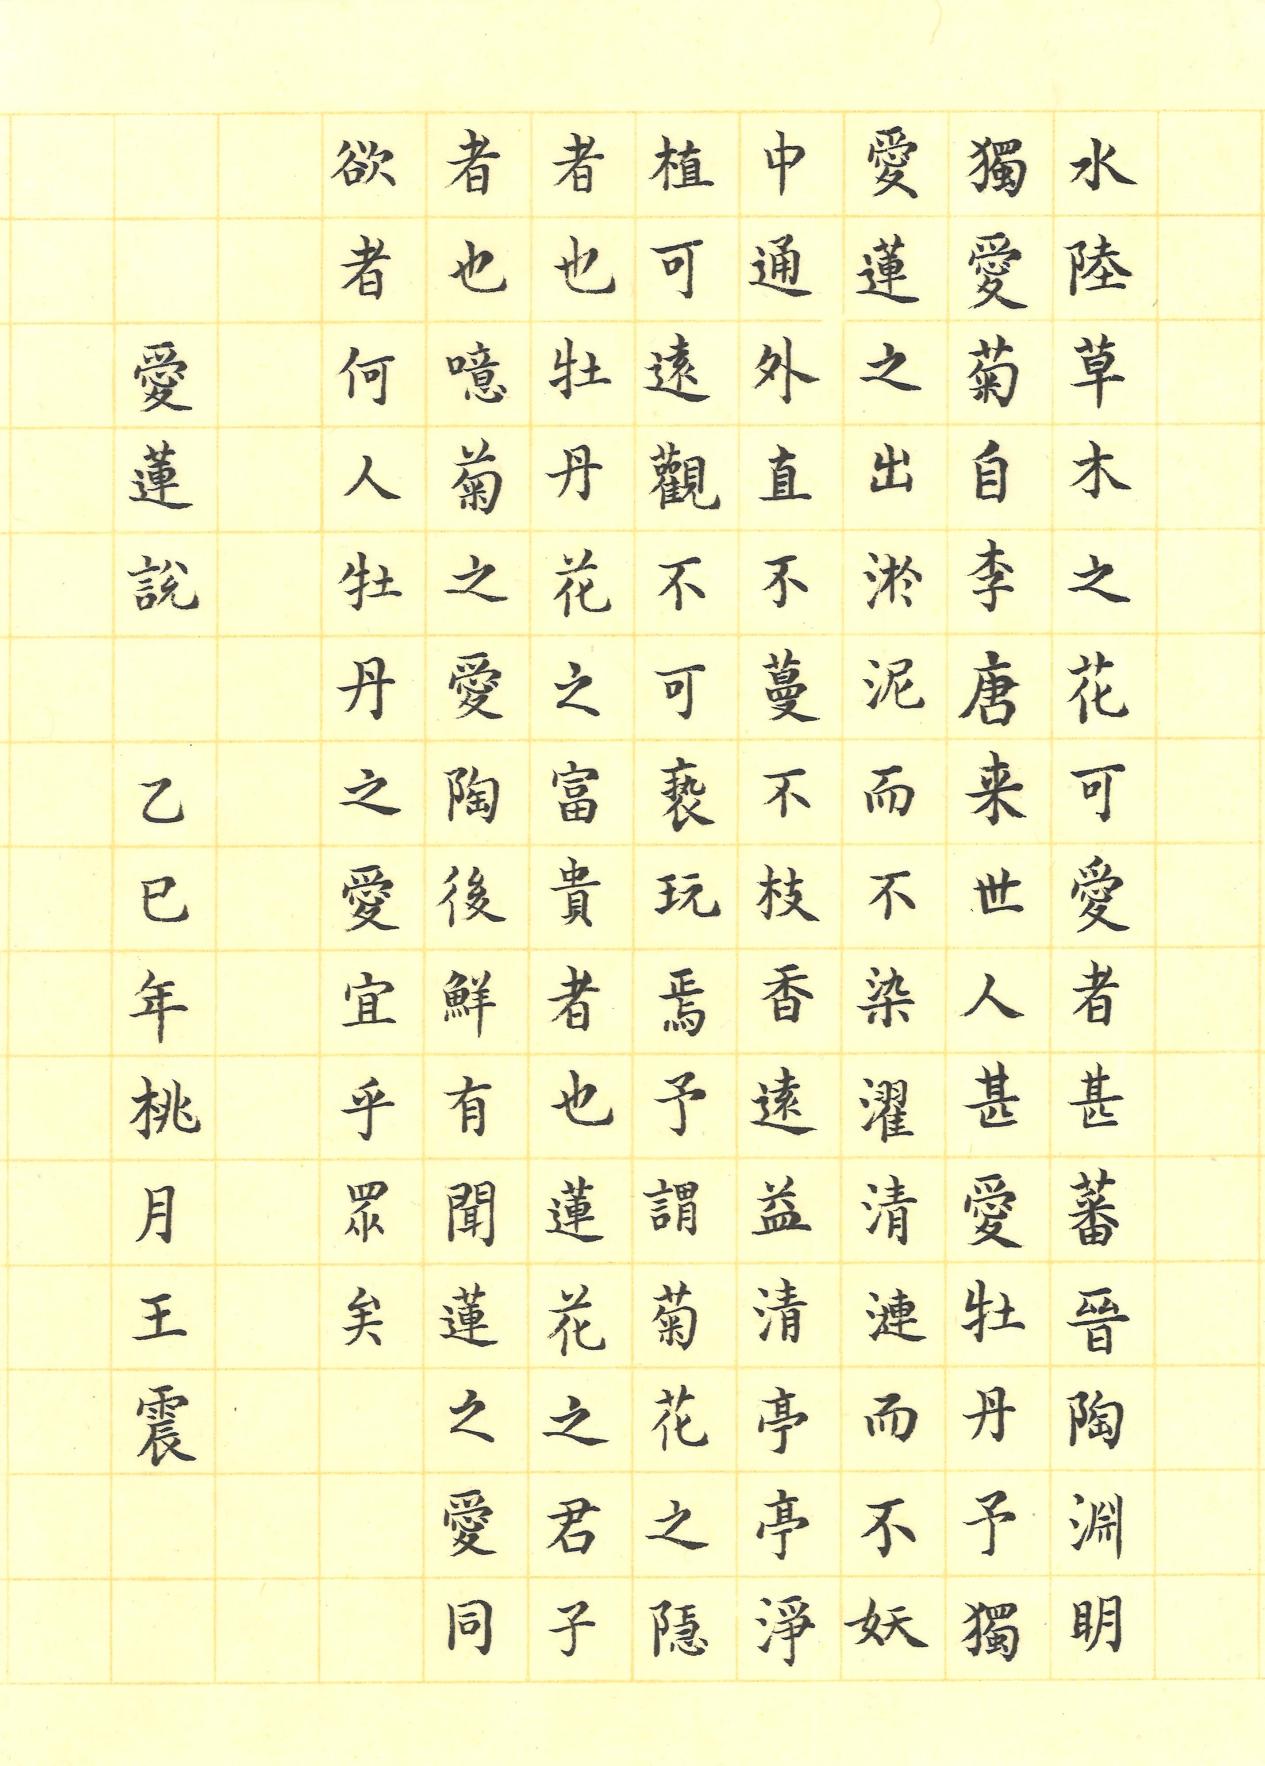 水陸草木之花可愛者甚蕃晉陶淵明
獨愛菊自李唐来世人甚愛牡丹予獨
愛蓮之出淤泥而不染濯清漣而不妖
中通外直不蔓不枝香遠益清亭亭淨
植可遠觀不可褻玩焉予謂菊花之隱
者也牡丹花之富貴者也蓮花之君子
者也噫菊之愛陶後鮮有聞蓮之愛同
欲者何人牡丹之愛宜乎眾矣
愛蓮說 乙巳年桃月王震